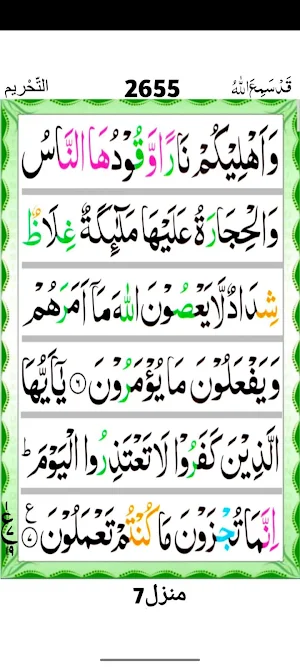 التَّحْرِيم 2655 قَدْ سَمِعَ اللّٰهُ
وَاَهْلِيْكُمْ نَارًا وَّقُوْدُهَا النَّاسُ
وَالْحِجَارَةُ عَلَيْهَا مَلٰٓئِكَةٌ غِلَاظٌ
شِدَادٌ لَّا يَعْصُوْنَ اللّٰهَ مَاۤ اَمَرَهُمْ
وَيَفْعَلُوْنَ مَا يُؤْمَرُوْنَ ۶ يٰۤاَيُّهَا
الَّذِيْنَ كَفَرُوْا لَا تَعْتَذِرُوا الْيَوْمَ ؕ
اِنَّمَا تُجْزَوْنَ مَا كُنْتُمْ تَعْمَلُوْنَ ۷ ع
منزل7